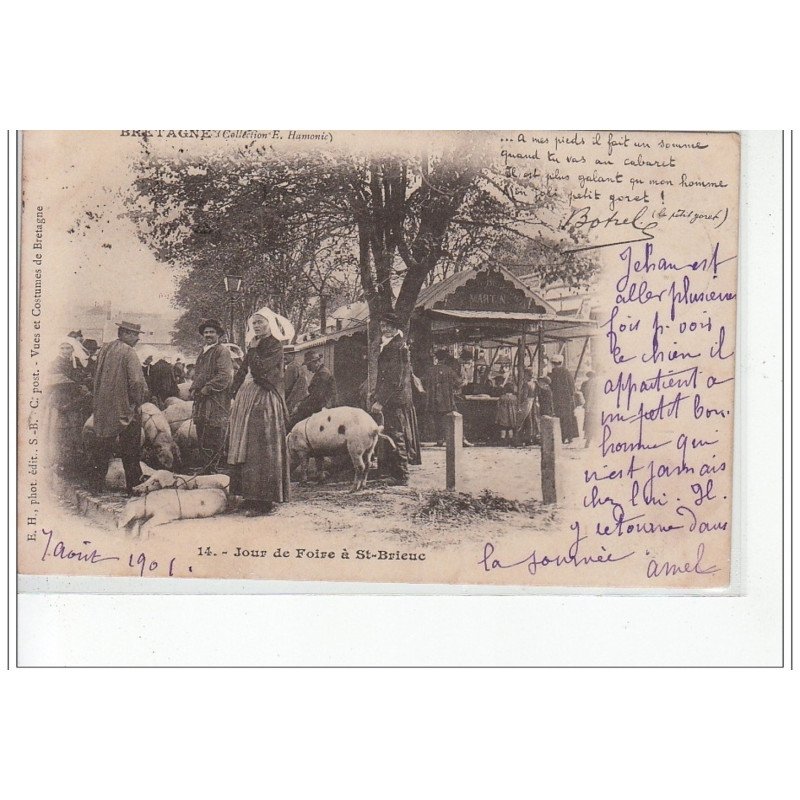 BRETAGNE (Collection E. Hamonic)
... A mes pieds il fait un somme
quand tu vas au cabaret
Il est plus galant qu mon homme
petit goret !
Botrel (le petit goret)
E. H., phot. édit., S-B. C. post. - Vues et Costumes de Bretagne
Jehan est
aller plusieurs
fois p. voir
le chien il
appartient a
un petit bon-
homme qui
n'est jamais
chez lui. Il
y retourne dans
la journée
amel
7 août 1901.
14. - Jour de Foire à St-Brieuc